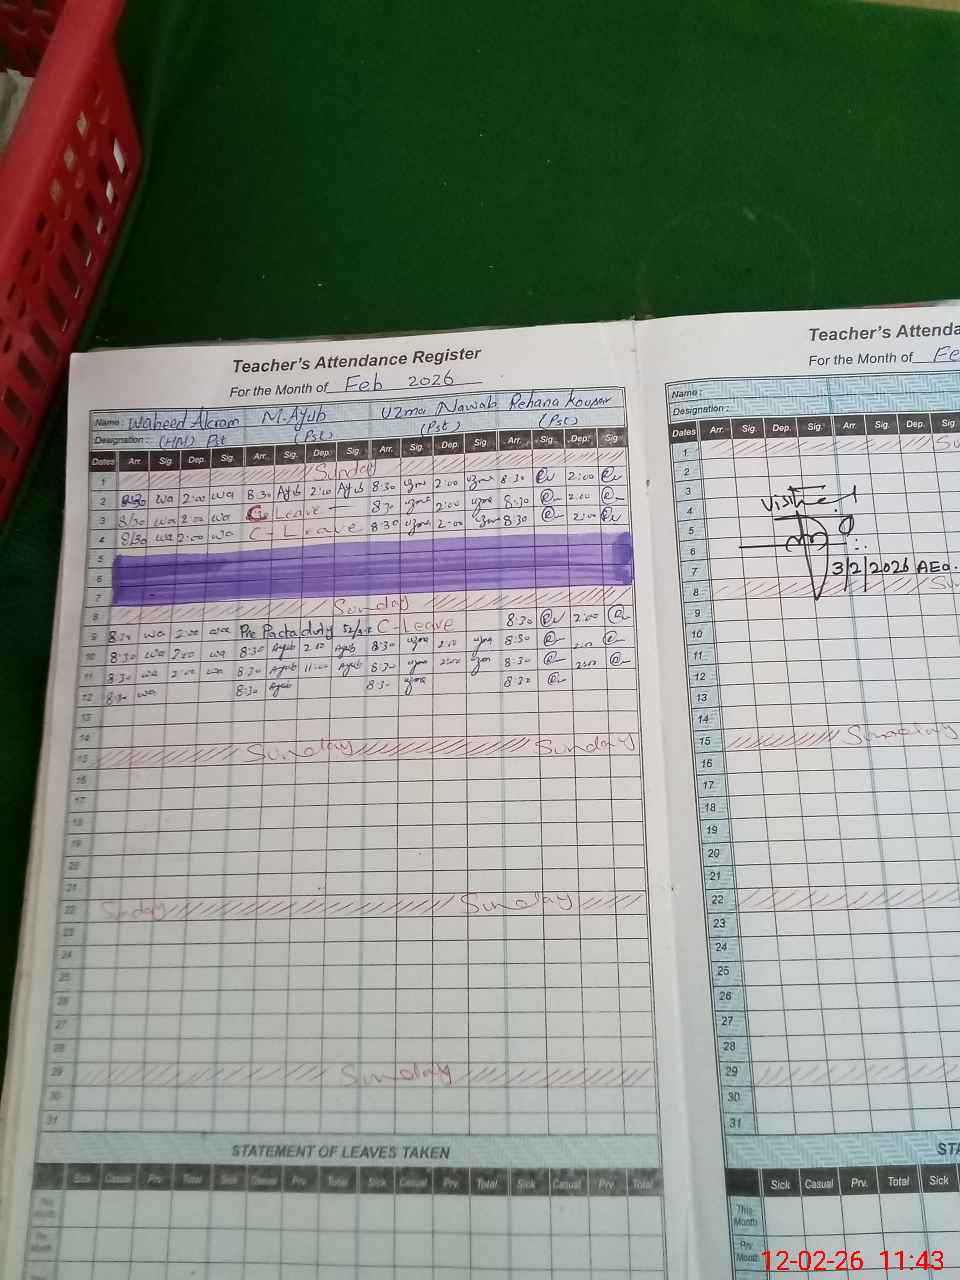 Teacher's Attendance Register
For the Month of Feb 2026
Name : Waheed Akram M. Ayub Uzma Nawab Rehana Kousar
Designation : (HM) Pst (Pst) (Pst) (Pst)
Dates Arr. Sig. Dep. Sig. Arr. Sig. Dep. Sig. Arr. Sig. Dep. Sig. Arr. Sig. Dep. Sig.
1 Sunday
2 8:30 wa 2:00 wa 8:30 Ayub 2:00 Ayub 8:30 uzma 2:00 uzma 8:30 2:00
3 8/30 wa 2:00 wa C Leave 8:30 uzma 2:00 uzma 8:30 2:00
4 8/30 wa 2:00 wa C-Leave 8:30 uzma 2:00 uzma 8:30 2:00
5
6
7
8 Sunday
9 8:30 wa 2:00 wa duty C-Leave 8:30 2:00
10 8:30 wa 2:00 wa 8:30 Ayub 2:00 Ayub 8:30 uzma 2:00 uzma 8:30 2:00
11 8:30 wa 2:00 wa 8:30 Ayub 11:00 Ayub 8:30 uzma 2:00 uzma 8:30 2:00
12 8:30 wa 8:30 Ayub 8:30 uzma 8:30
13
14
15 Sunday Sunday
16
17
18
19
20
21
22 Sunday Sunday
23
24
25
26
27
28
29 Sunday
30
31
STATEMENT OF LEAVES TAKEN
Sick Casual Prv. Total Sick Casual Prv. Total Sick Casual Prv. Total Sick Casual Prv. Total
This Month
Prv. Month
Teacher's Attenda
For the Month of Fe
Name :
Designation :
Dates Arr. Sig Dep. Sig. Arr. Sig. Dep. Sig.
1 Su
2
3
4 Visited
5
6
7 3/2/2026 AEO.
8 Su
9
10
11
12
13
14
15 Sunday
16
17
18
19
20
21
22
23
24
25
26
27
28
29
30
31
STA
Sick Casual Prv. Total Sick
This Month
Prv. Month
12-02-26 11:43